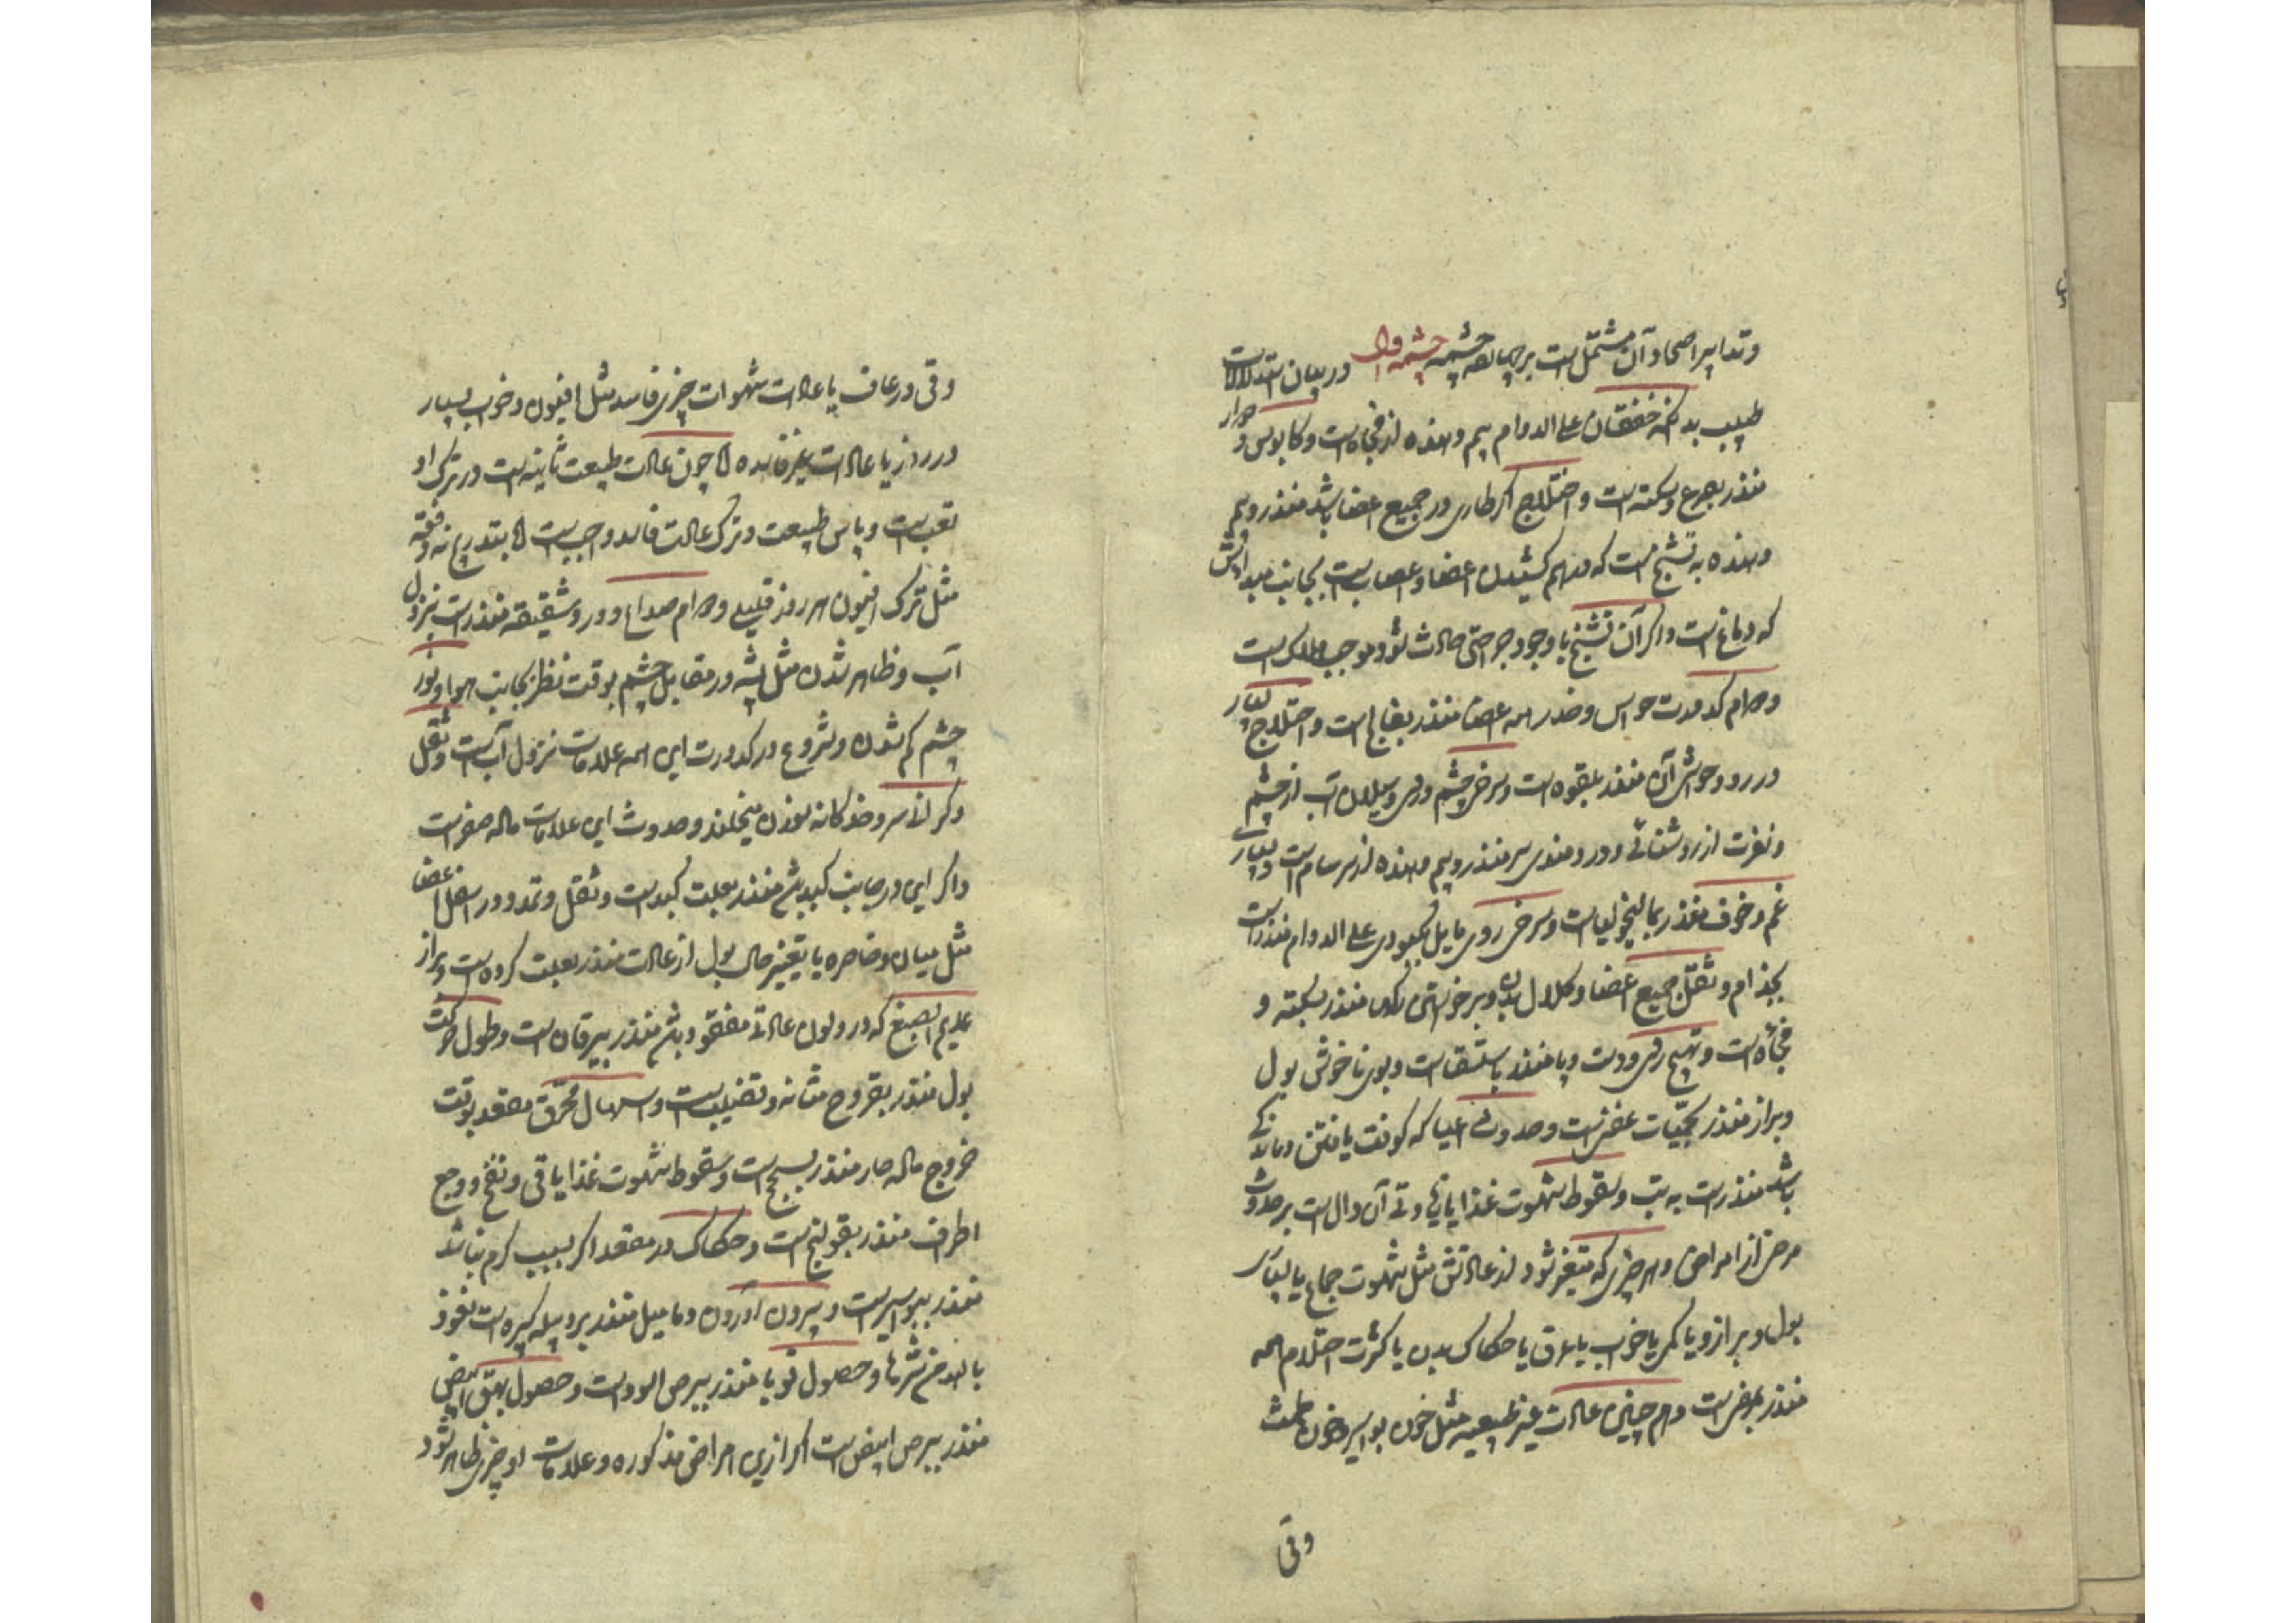 وتدابیر اصحا و آن مشتمل است بر چهار چشمه چشمه اول در بیان استدلالات
طبیب بدانکه خفقان علی الدوام بیم دهنده از فجاه است و کابوس و دوار
منذر بصرع و سکته است و اختلاج اگر طاری در جمیع اعضا باشد منذر و بیم
دهنده به تشنج است که مهم کشیدن اعضا و اعصاب است بجانب مبداش
که دماغ است و اگر آن تشنج با وجود جراحتی حادث شود موجب هلاک است
و دوام کدورت حواس و خدر همه اعضا منذر بفالج است و اختلاج بسیار
در رو و حواشی آن منذر بلقوه است و سرخی چشم و روی و سیلان آب از چشم
و نفرت از روشنائی و درد مندی سر منذر و بیم دهنده از سرسام است و بسیاری
غم و خوف منذر بمالیخولیاست و سرخی روی مایل بکبودی علی الدوام منذر است
بجذام و ثقل جمیع اعضا و کلال بدن و برخواستن رگها منذر بسکته و
فجأه است و تهیج روی و دست و پا منذر باستسقاست و بوی ناخوشی بول
و براز منذر بحمیات عفنی است و حدوث اعیا که کوفت یافتن و ماندگی
باشد منذر است به تب و سقوط شهوت غذا یا زیادتی آن دال است بر حدوث
مرضی از امراض و هر چیزی که متغیر شود از عادتش مثل شهوت جماع یا بسیاری
بول و براز و یا کمی یا خواب یا عرق یا حکاک بدن یا کثرت احتلام همه
منذر بمرض است و هم چنین عادات غیر طبیعیه مثل خون بواسیر و خون طمث
وقی
وقی و رعاف یا عادات شهوات چیزی فاسد مثل افیون و خواب بسیار
در روز یا عادات غیر فاسده اما چون عادت طبیعت ثانیه است در ترک او
تعب است و پاس طبیعت و ترک عادت فاسد واجب است اما بتدریج نه دفعة
مثل ترک افیون هر روز قلیلی و دوام صداع و درد شقیقه منذر است بنزول
آب و ظاهر شدن مثل پشه در مقابل چشم بوقت نظر بجانب هوا و نور
چشم کم شدن و شروع در کدورت این همه علامات نزول آب است و ثقل
و اگر این در جانب کبد باشد منذر بعلت کبد است و ثقل و تمدد در اسفل اعضا
مثل میان و خاصره یا تغییر حال بول از عادت منذر بعلت کرده است و براز
عدیم الصبغ که در و لون عادتی مفقود باشد منذر بیرقان است و طول حرکت
بول منذر بقروح مثانه و قضیب است و اسهال محرق مقعد بوقت
خروج ماده حار منذر بسحج است و سقوط شهوت غذا یا قی و نفخ و وجع
اطراف منذر بقولنج است و حکاک در مقعد اگر بسبب کرم نباشد
منذر ببواسیر است و بیرون آوردن دمامیل منذر بدبیله کبیره است نعوذ
بالله من شرها و حصول قوبا منذر ببرص اسود است و حصول بهق ابیض
منذر ببرص ابیض است اگر ازین امراض مذکوره و علامات او چیزی ظاهر شود